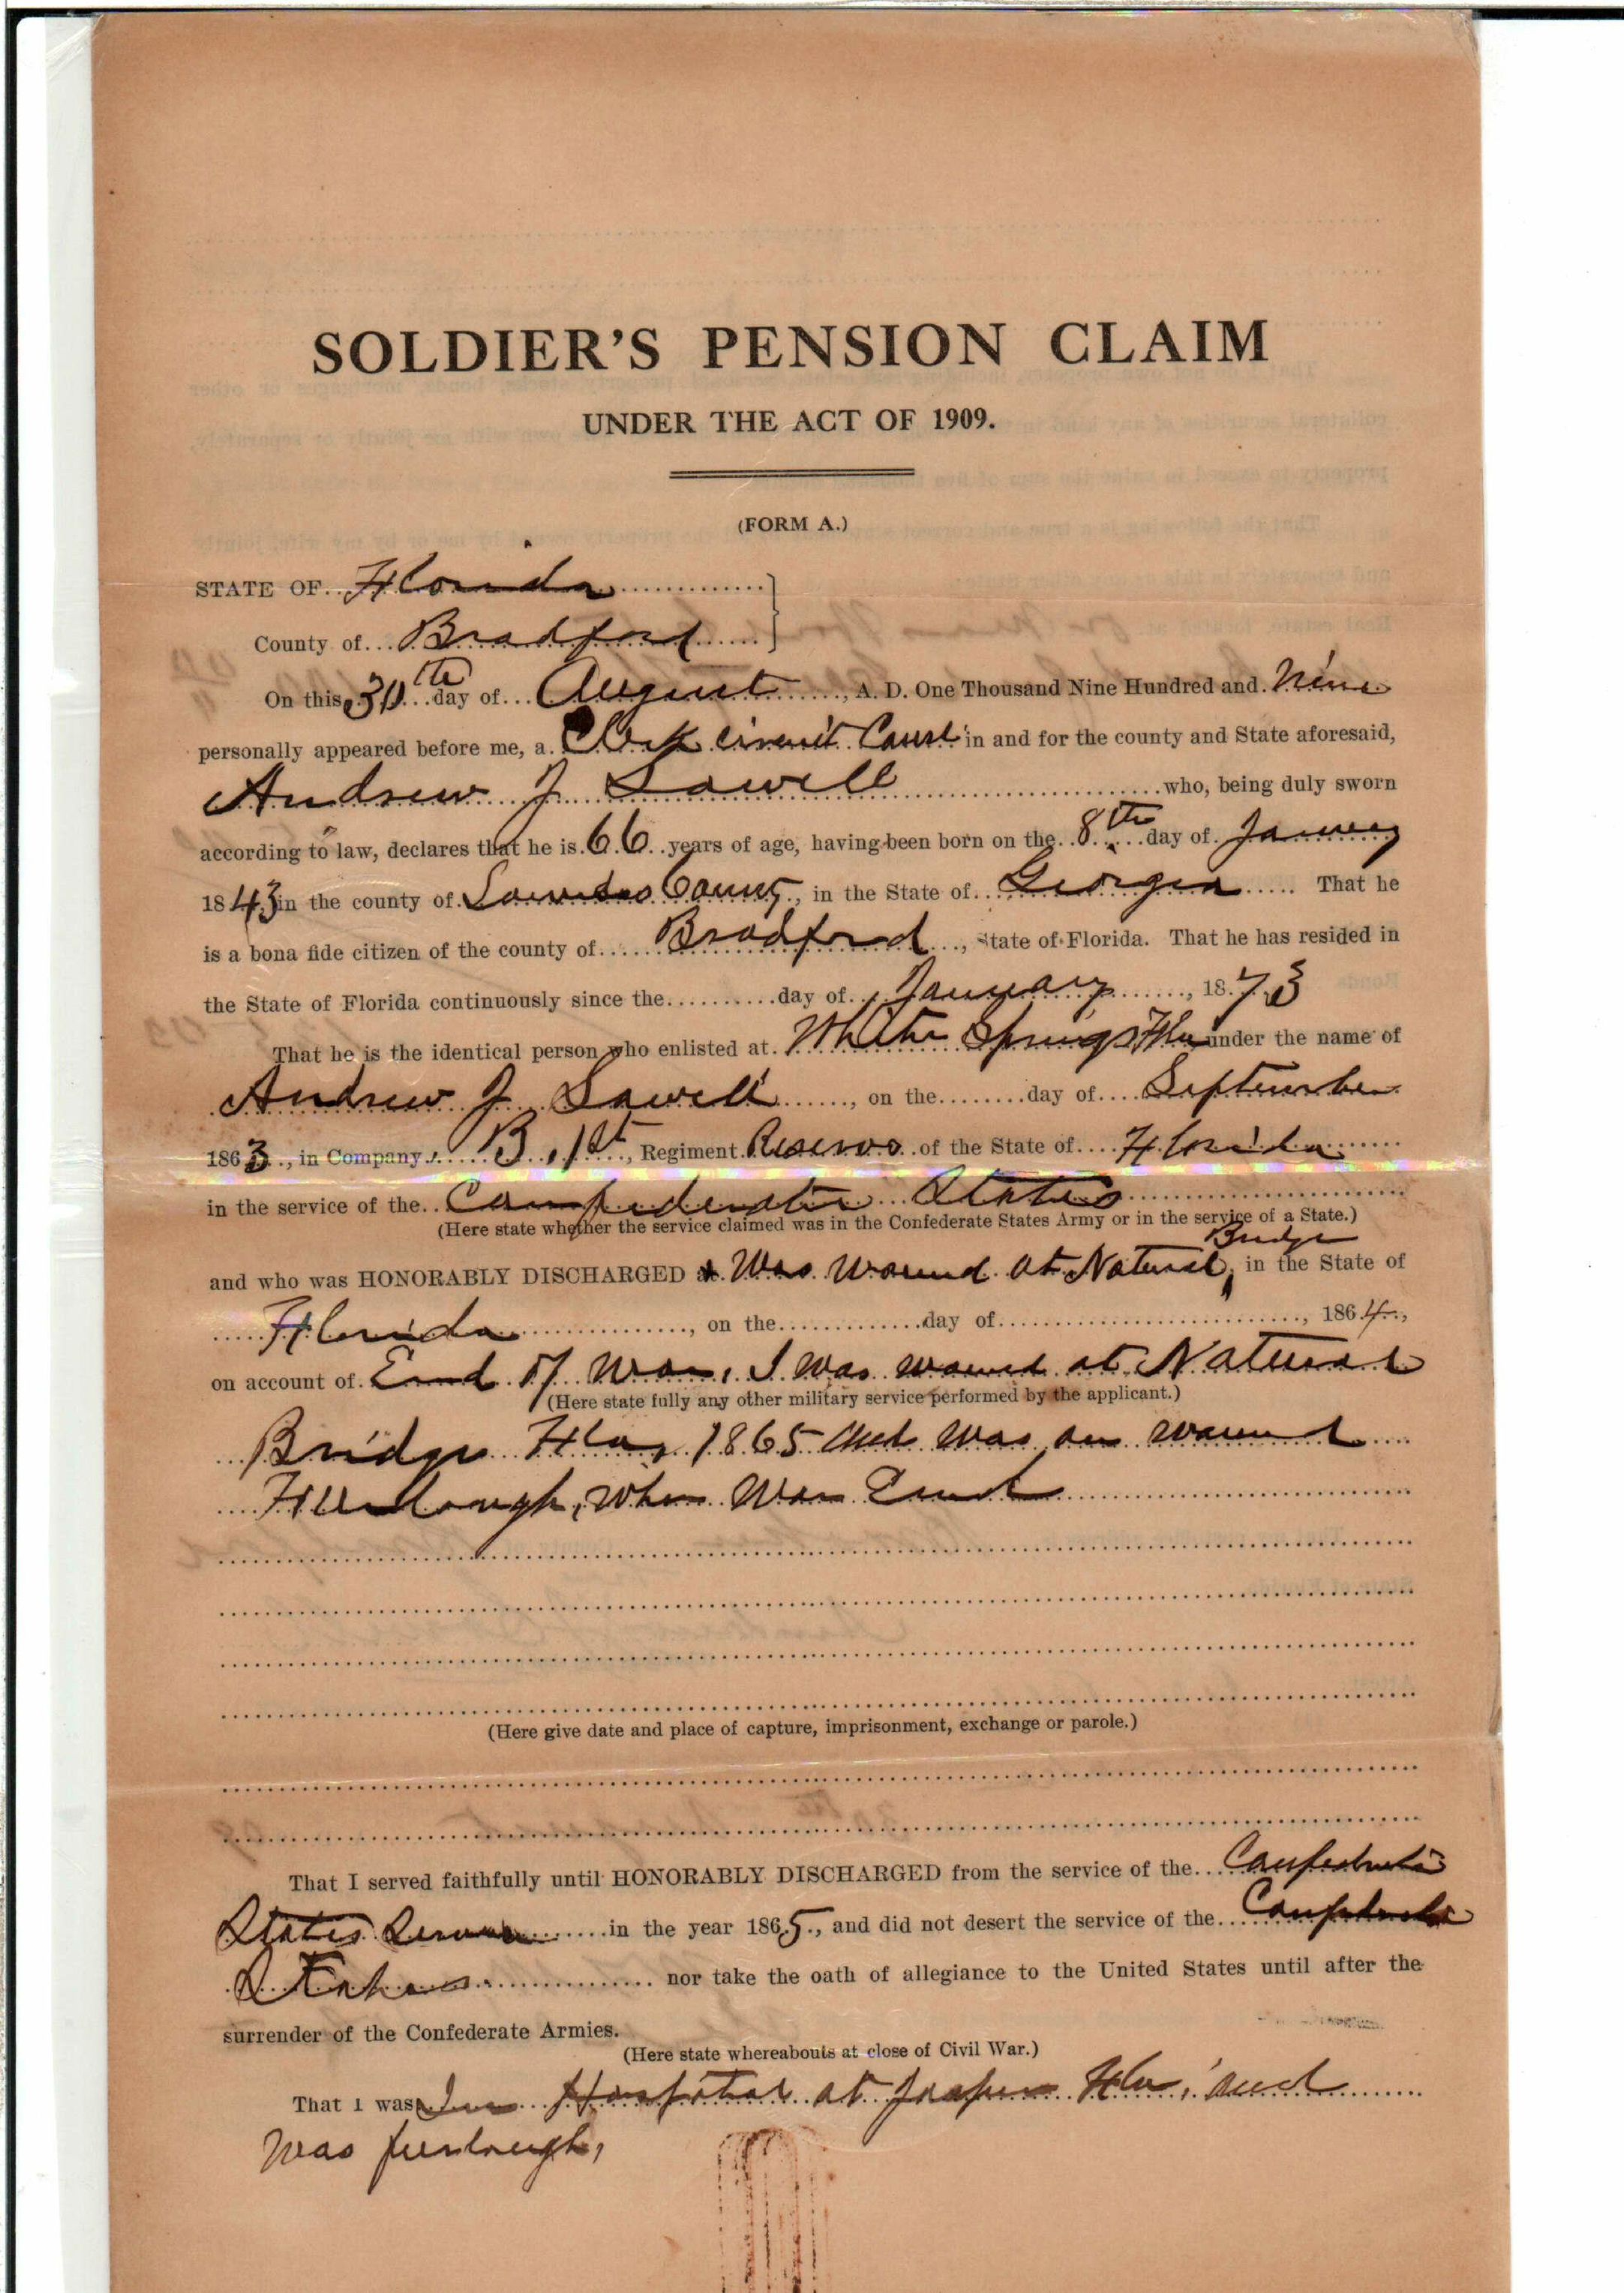 SOLDIER'S PENSION CLAIM
UNDER THE ACT OF 1909.
(FORM A.)
STATE OF Florida
County of Bradford
On this 30th day of August, A. D. One Thousand Nine Hundred and Nine
personally appeared before me, a Clerk Circuit Court in and for the county and State aforesaid,
Andrew J Sowell who, being duly sworn
according to law, declares that he is 66 years of age, having been born on the 8th day of January
1843 in the county of Lowndes County, in the State of Georgia That he
is a bona fide citizen of the county of Bradford, State of Florida. That he has resided in
the State of Florida continuously since the day of January, 1873
That he is the identical person who enlisted at White Springs Fla under the name of
Andrew J Sowell, on the day of September
1863, in Company B, 1st, Regiment Reserve of the State of Florida
in the service of the Confederate States
(Here state whether the service claimed was in the Confederate States Army or in the service of a State.)
and who was HONORABLY DISCHARGED Was Wound at Natural Bridge, in the State of
Florida, on the day of, 1864,
on account of End of War, I was wound at Natural
(Here state fully any other military service performed by the applicant.)
Bridge Fla, 1865 and was on wound
Furlough, when War End
(Here give date and place of capture, imprisonment, exchange or parole.)
That I served faithfully until HONORABLY DISCHARGED from the service of the Confederate
States in the year 1865, and did not desert the service of the Confederate
States nor take the oath of allegiance to the United States until after the
surrender of the Confederate Armies.
(Here state whereabouts at close of Civil War.)
That I was In Hospital at Jasper Fla, and
was furlough,